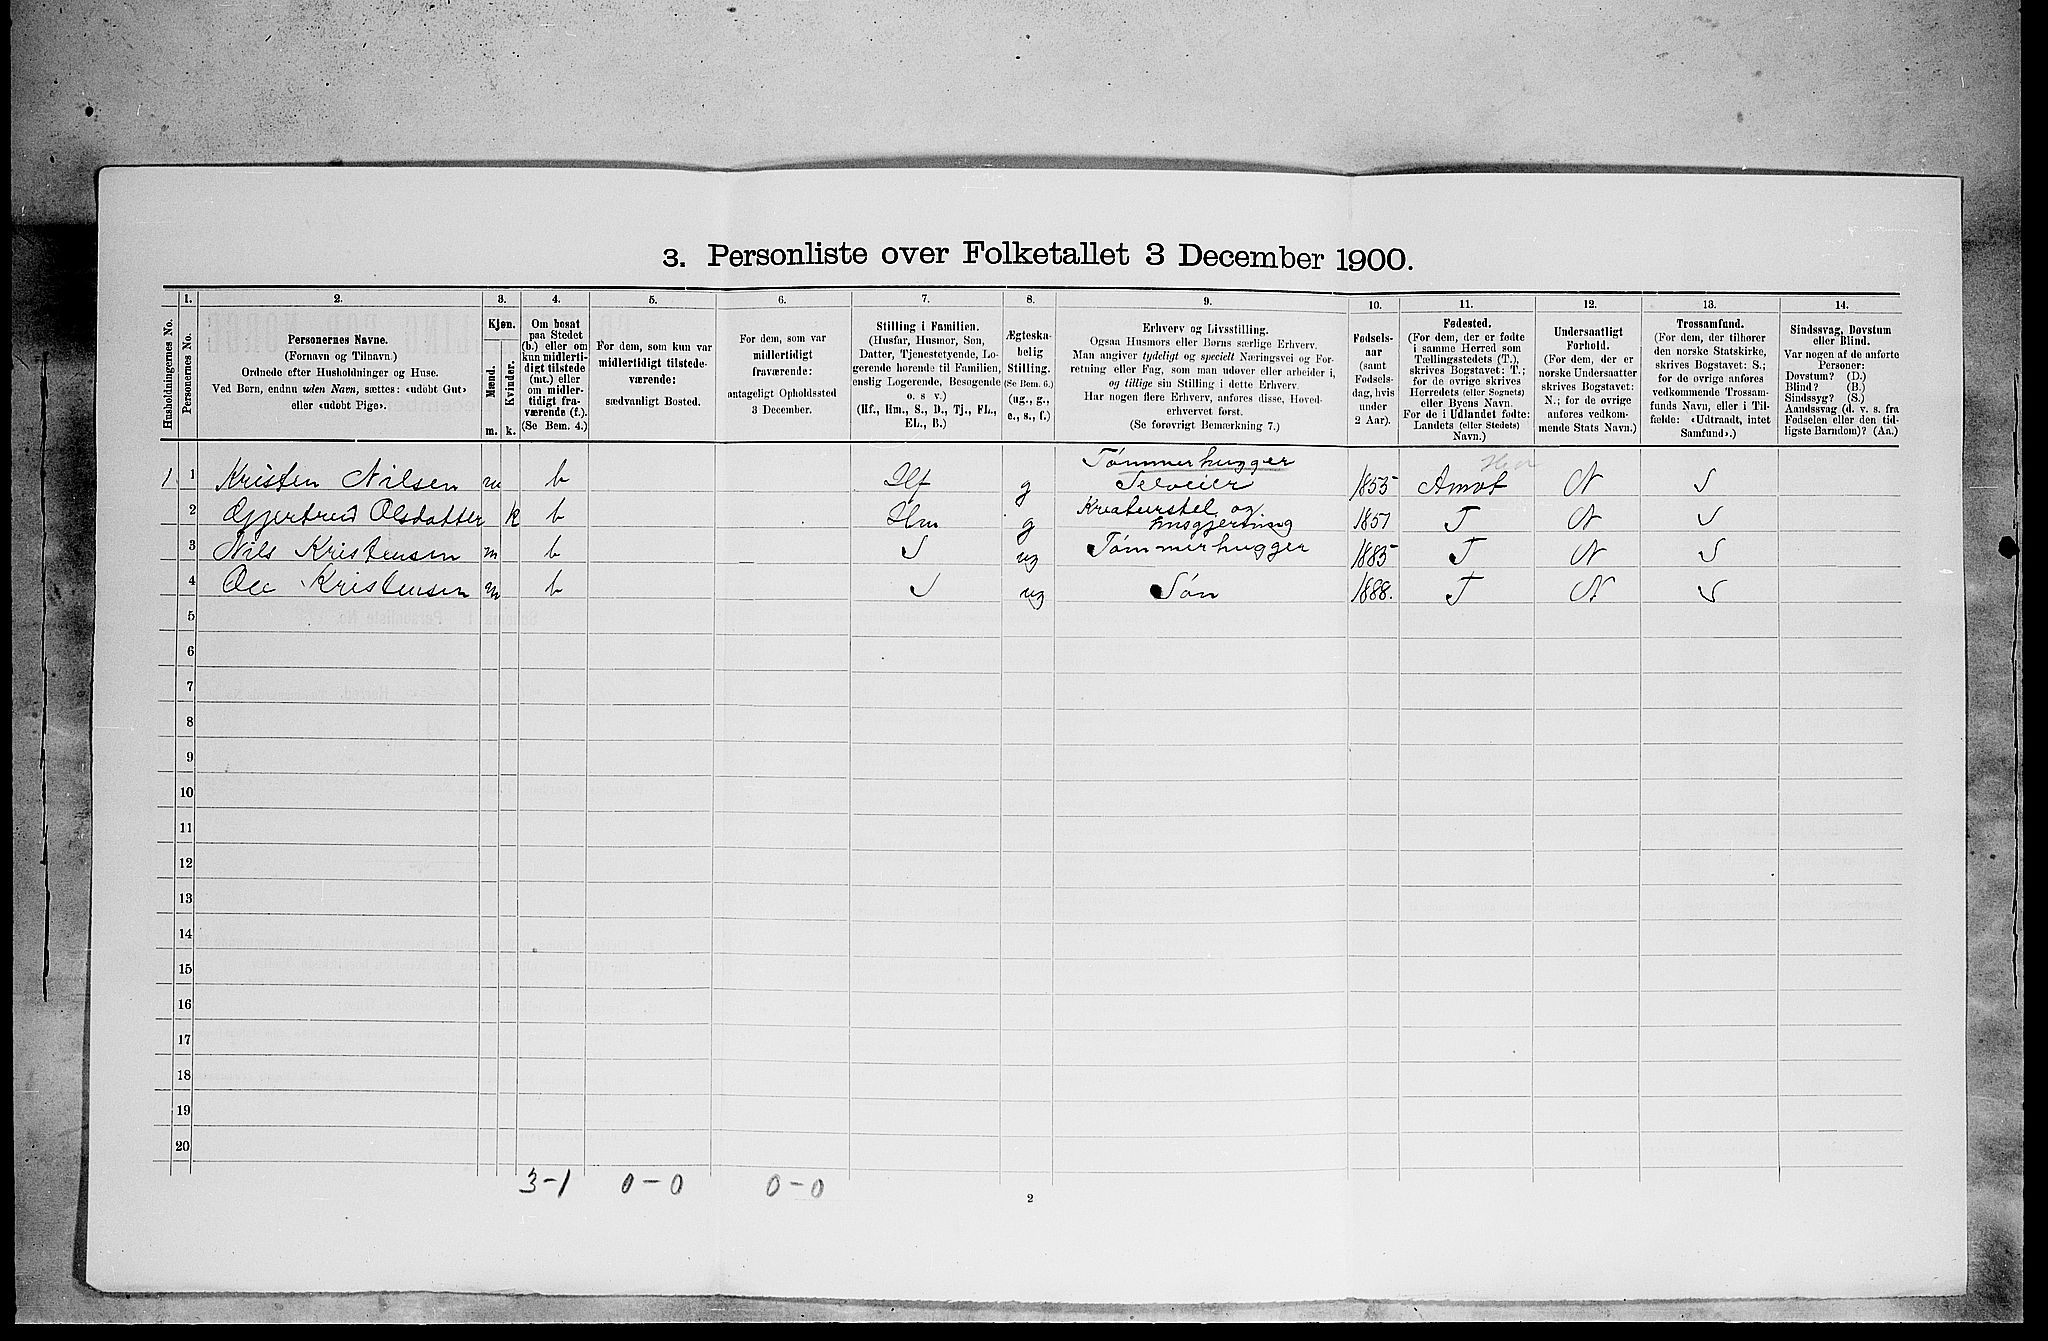 3. Personliste over Folketallet 3 December 1900.
Husholdningernes No.
1.
Personernes No.
2.
Personernes Navne.
(Fornavn og Tilnavn.)
Ordnede efter Husholdninger og Huse.
Ved Børn, endnu uden Navn, sættes: «udøbt Gut»
eller «udøbt Pige».
3.
Kjøn.
Mænd.
Kvinder.
m. k.
4.
Om bosat
paa Stedet
(b.) eller om
kun midlerti-
digt tilstede
(mt.) eller
om midler-
tidigt fra-
værende (f.).
(Se Bem. 4.)
5.
For dem, som kun var
midlertidigt tilstede-
værende:
sædvanligt Bosted.
6.
For dem, som var
midlertidigt
fraværende:
antageligt Opholdssted
3 December.
7.
Stilling i Familien.
(Husfar, Husmor, Søn,
Datter, Tjenestetyende, Lo-
gerende hørende til Familien,
enslig Logerende, Besøgende
o. s v.)
(Hf., Hm., S., D., Tj., FL.,
EL., B.)
8.
Ægteska-
belig
Stilling.
(Se Bem. 6.)
(ug., g.,
e., s., f.)
9.
Erhverv og Livsstilling.
Ogsaa Husmors eller Børns særlige Erhverv.
Man angiver tydeligt og specielt Næringsvei og For-
retning eller Fag, som man udøver eller arbeider i,
og tillige sin Stilling i dette Erhverv.
Har nogen flere Erhverv, anføres disse, Hoved-
erhvervet først.
(Se forøvrigt Bemærkning 7.)
10.
Fødsels-
aar
(samt
Fødsels-
dag, hvis
under
2 Aar).
11.
Fødested.
(For dem, der er fødte
i samme Herred som
Tællingsstedets (T.),
skrives Bogstavet: T.;
for de øvrige skrives
Herredets (eller Sognets)
eller Byens Navn.
For de i Udlandet fødte:
Landets (eller Stedets)
Navn.)
12.
Undersaatligt
Forhold.
(For dem, der er
norske Undersaatter
skrives Bogstavet:
N.; for de øvrige
anføres vedkom-
mende Stats Navn.)
13.
Trossamfund.
(For dem, der tilhører
den norske Statskirke,
skrives Bogstavet: S.;
for de øvrige anføres
vedkommende Trossam-
funds Navn, eller i Til-
fælde: «Udtraadt, intet
Samfund».)
14.
Sindssvag, Døvstum
eller Blind.
Var nogen af de anførte
Personer:
Døvstum? (D.)
Blind? (B.)
Sindssyg? (S.)
Aandssvag (d. v. s. fra
Fødselen eller den tid-
ligste Barndom)? (Aa.)
1 1 Kristen Nilsen m b Hf g Tømmerhugger Selveier 1855 Amot N S
2 Gjertrud Olsdatter k b Hm g Kreaturstel og husgjerning 1851 T N S
3 Nils Kristensen m b S ug Tømmerhugger 1885 T N S
4 Ole Kristensen m b S ug Søn 1888. T N S
5
6
7
8
9
10
11
12
13
14
15
16
17
18
19
20
3-1 0-0 0-0
2